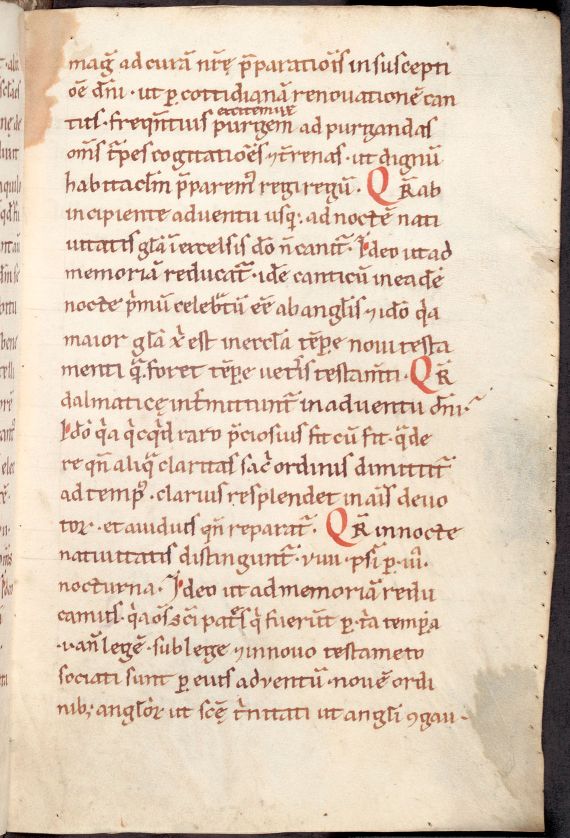 mag̃ ad curã nr̃ę p̃paratiõis in suscepti
õe dñi · ut ꝑ cottidianã renovationẽ can
tus · freq̃ntius excitemur purgem̃ ad purgandas
om̃s t̃p̃es cogitatiões ⁊t̃renas · ut dignũ
habitac̃lm p̃parem᷒ regi regũ · Qr̃ ab
incipiente adventu usq; ad noctẽ nati
uitatis gl̃a ĩexcelsis dõ ñ canit᷑ · Ideo ut ad
memoriã reducat᷑ · idẽ canticũ in eadẽ
nocte p̃mũ celebr̃tũ eẽ ab angl̃is ⁊ idõ q̃a
maior gl̃a x̃ est in eccl̃a tẽp̃e noui testa
menti q̃ foret tẽp̃e uet̃is testam̃ti · Qr̃
dalmaticę int̃mittunt᷑ in adventu dñi ·
Idõ q̃a q̃cq̃d raro p̃ciosius fit cũ fit · q̃ de
re qñ aliq̃ claritas sac̃ ordinis dimittit᷑
ad temp᷒ · clarius resplendet in aĩs deuo
tor᷑ · et auidius qñ reparat᷑ · Qr̃ in nocte
natiuitatis distingunt᷑ · viiii · ps̃i ꝑ · iii ·
nocturna · Ideo ut ad memoriã redu
camus · q̃a om̃s sc̃i patres q̃ fuerũt ꝑ · t̃a temp̃a
· v · an̄ legẽ · sub lege ⁊ in novo testam̃eto
sociati sunt ꝑ eius adventũ · nouẽ ordi
nib; angl̃or᷑ ut sc̃ę t̃nitati ut angl̃i ꝯgau ·